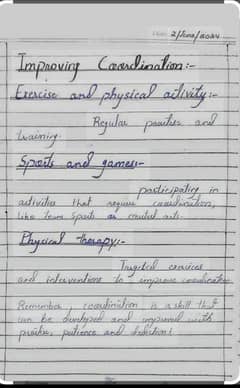 Date: 2/June/2024
Improving Coordination:-
Exercise and physical activity:-
Regular practise and
training.
Sports and games:-
participating in
activities that require coordination,
like team sports or martial arts.
Physical therapy:-
Targeted exercises
and interventions to improve coordination
Remember, coordination is a skill that
can be developed and improved with
practise, patience and dedication!